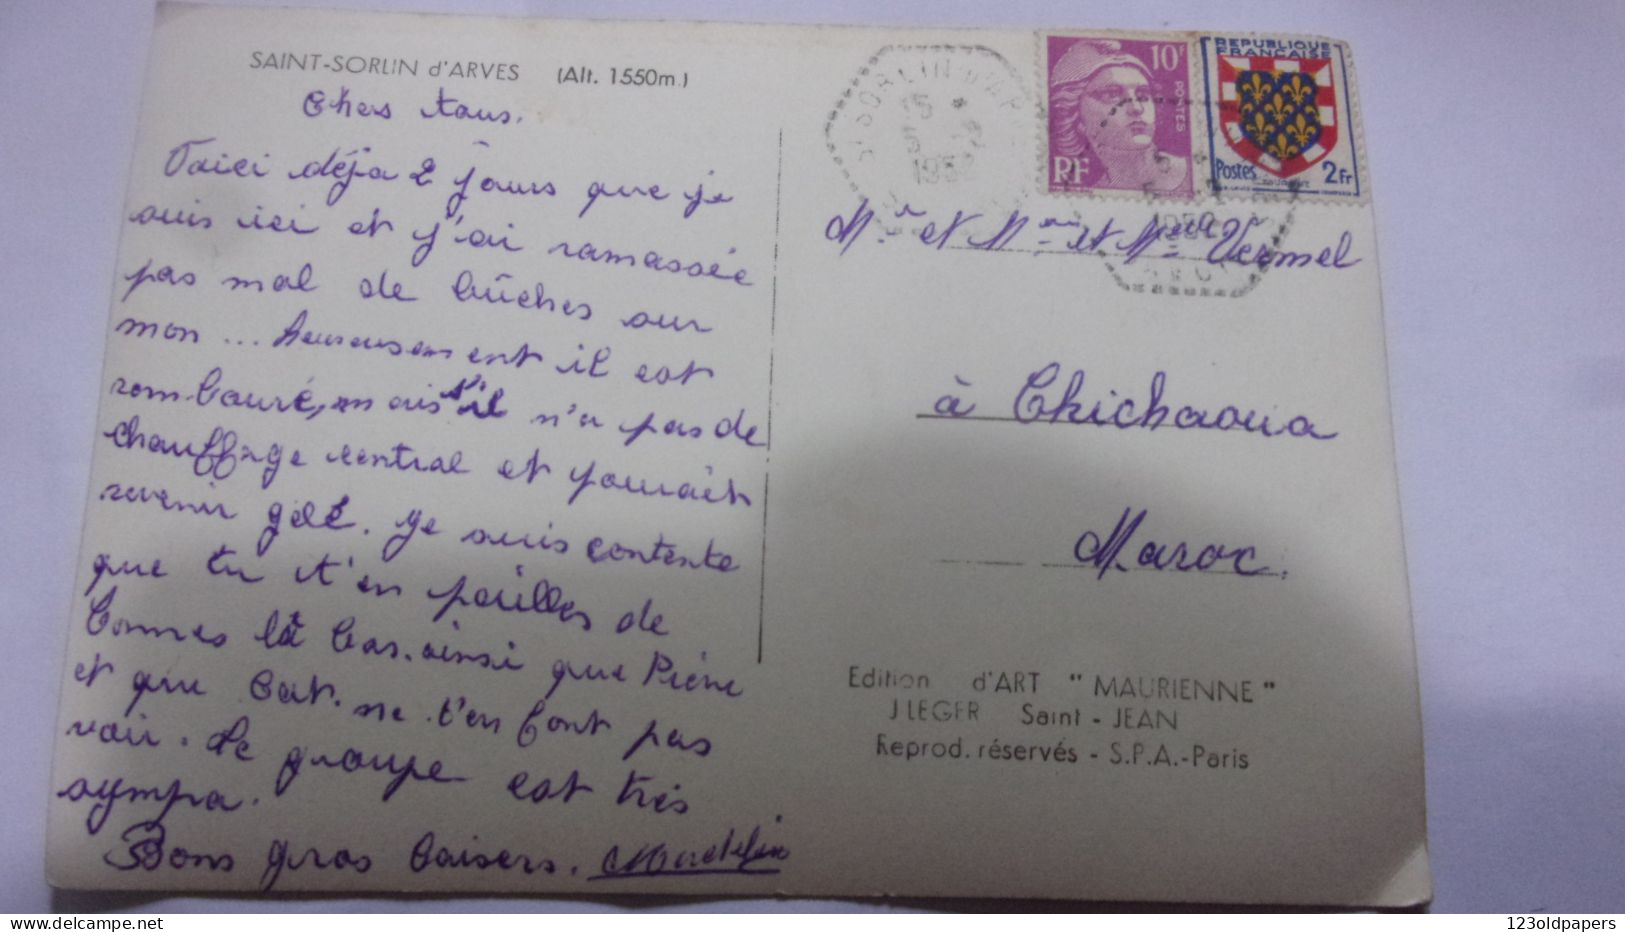 SAINT-SORLIN d'ARVES (Alt. 1550m.)
Chers tous.
Voici déja 2 jours que je
suis ici et j'ai ramassée
pas mal de bûches sur
mon ... heureusement il est
rembouré, mais s'il n'a pas de
chauffage central et pourait
revenir gelé. Je suis contente
que tu t'en pailles de
bonnes là bas. ainsi que Piérre
et que Cat. ne t'en font pas
voir. Le groupe est très
sympa.
Bons gros baisers.
REPUBLIQUE
FRANCAISE
10F
POSTES
RF
Postes 2Fr
Mr et Mme et Vermel
à Chichaoua
Maroc.
Edition d'ART "MAURIENNE"
J LEGER Saint - JEAN
Reprod. réservés - S.P.A.-Paris
123oldpapers